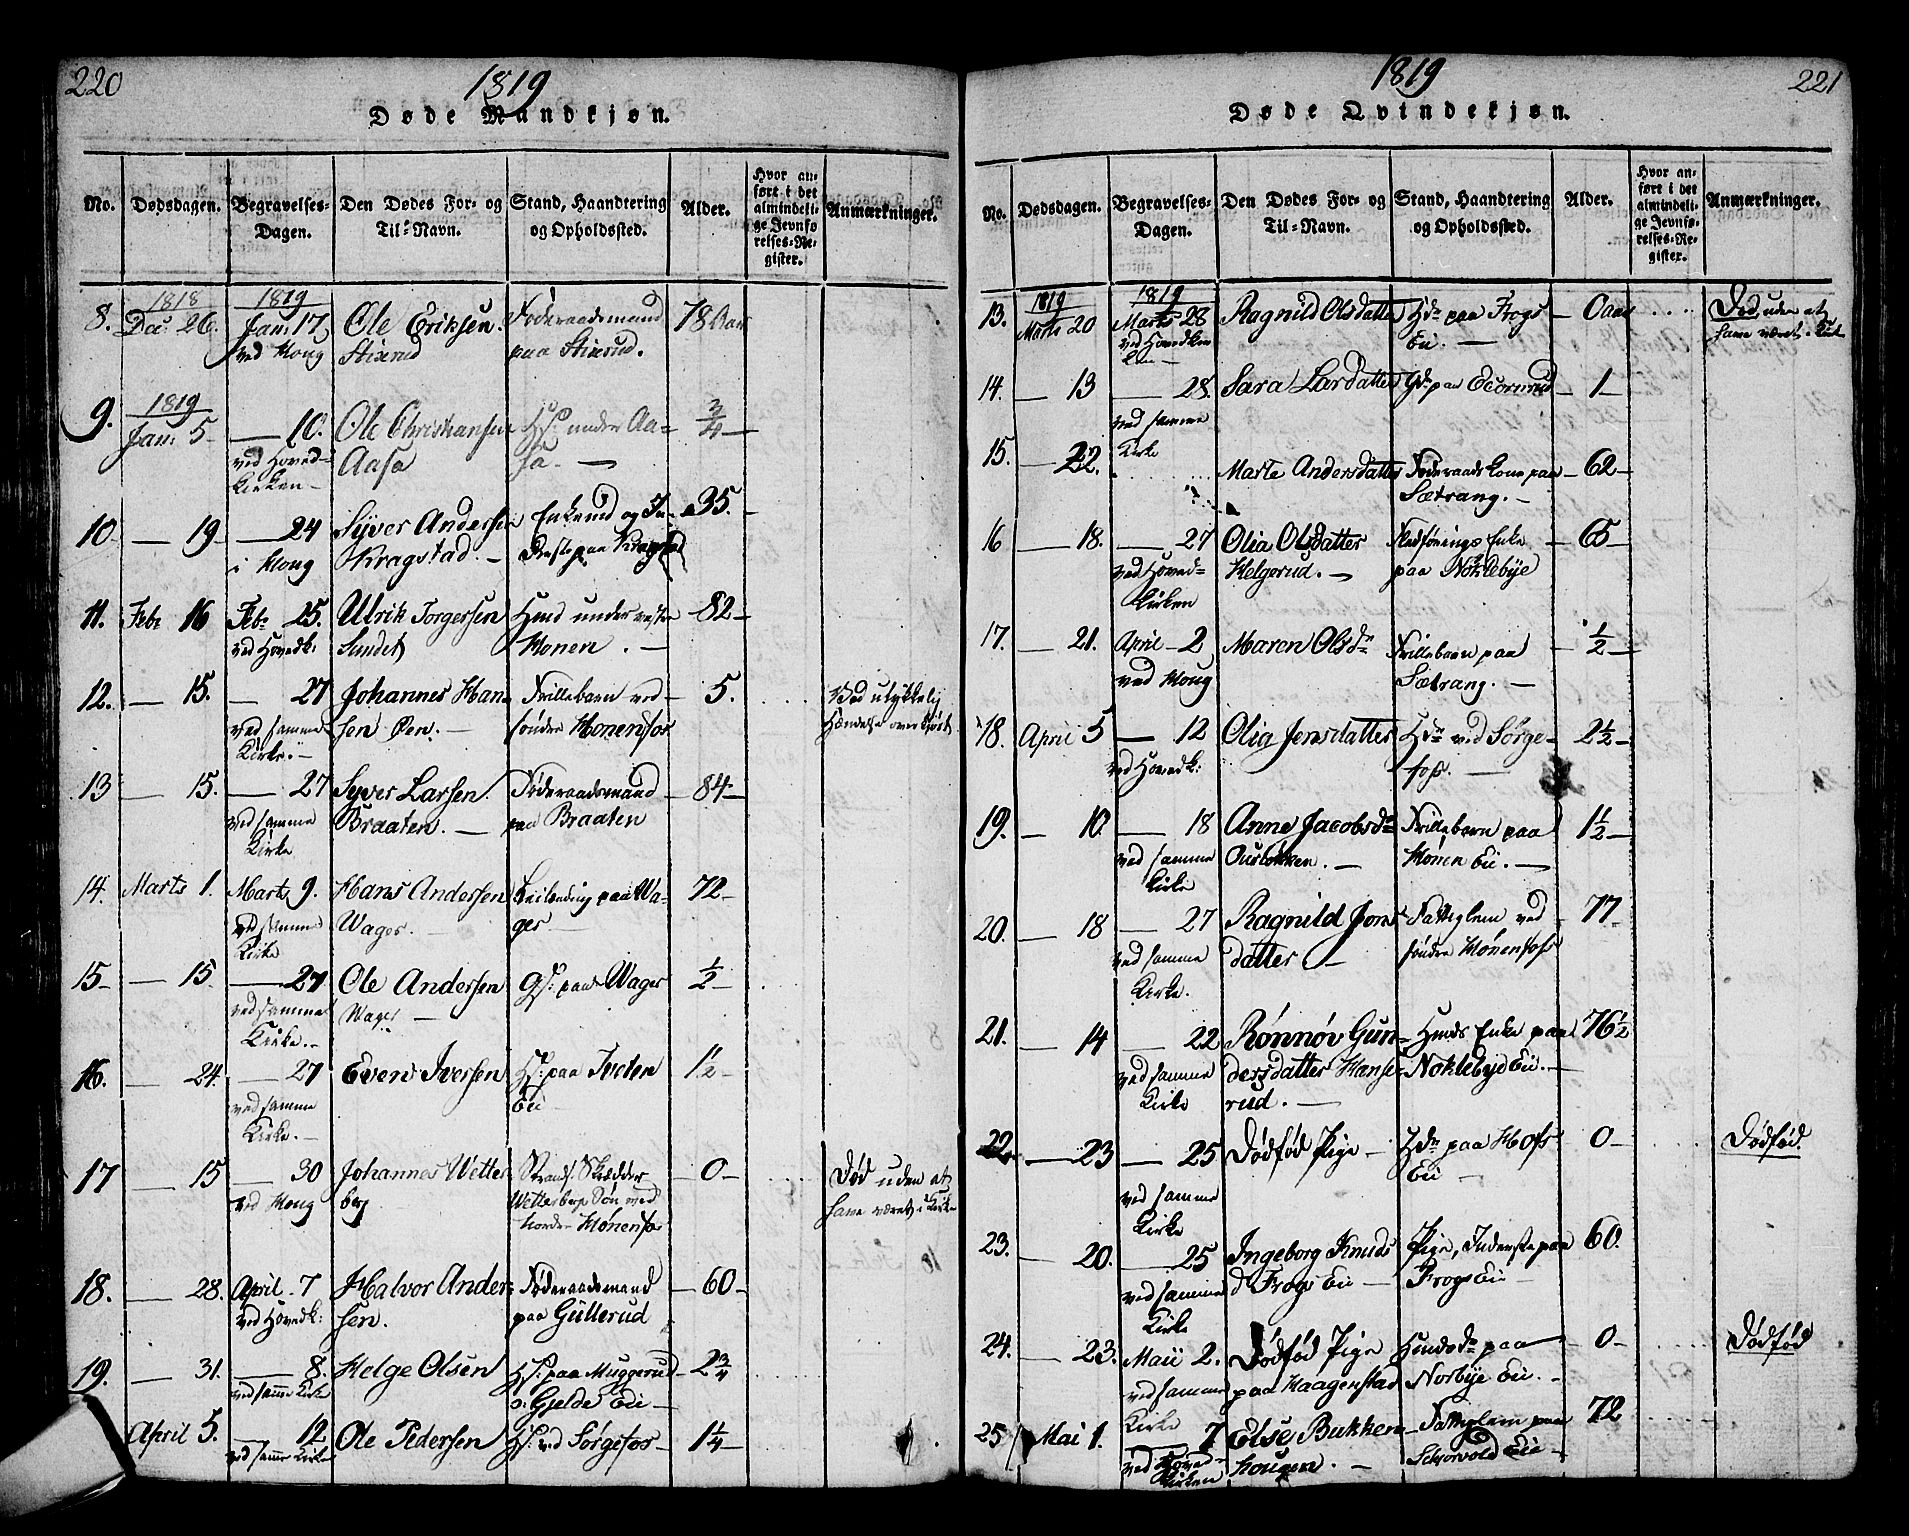 220
1819
Døde Mandkjøn.
No.
Dødsdagen.
Begravelses-
Dagen.
Den Dødes For- og
Til-Navn.
Stand, Haandtering
og Opholdssted.
Alder.
Hvor an-
ført i det
almindeli-
ge Jevnfø-
relses-Re-
gister.
Anmærkninger.
8.
1818
Dec: 26.
1819
Jan: 17.
ved Houg
Ole Eriksen
Stixrud
Føderaadsmand
paa Stixrud.
78 Aar
9.
1819
Jan: 5
— 10.
ved Hoved-
kirken
Ole Christiansen
Aasa
Hs: under Aa-
sa. —
3/4
10
— 19
— 24
i Houg
Syver Andersen
Kragstad. —
Enkemd og In-
derste paa Kragstad
35.
11.
Febr 16
Febr 25.
ved Hovedk:
Ulrik Torgersen
Sundet
Hmd under
Honen. —
82
12.
— 15.
— 27
ved samme
Kirke.
Johannes Han-
sen Øen. —
Frillebarn ved
søndre Honenfos
5.
Ved ulykkelig
Hændelse
13
— 15.
— 27
ved samme
Kirke
Syver Larsen
Braaten. —
Føderaadsmand
paa Braaten
84
14.
Marts 1.
Marts 9.
ved samme
Kirke
Hans Andersen
Wager. —
paa Wa-
ger —
72
15
— 15.
— 27
ved samme
Kirke. —
Ole Andersen
Wager —
Gs: paa Wager
1/2
16.
— 24.
— 27
ved samme
Kirke. —
Even Iversen
Hs: paa Tveten
Eie —
1 1/2
17
— 15
— 30
ved Houg
Johannes Wetter-
berg
Skrædder
Wetterbergs Søn ved
nordre Hønenfos
0
Død uden at
have været i Kirke
18.
— 28.
April 7
ved Hovedk:
Halvor Ander-
sen.
Føderaadsmand
paa Gullerud
60
19.
— 31.
— 8.
ved samme Kirke
Helge Olsen
Hs: paa Muggerud
o: Gjelde Eie —
2 3/4
April 5.
— 12
ved samme Kirke
Ole Pedersen
Hs: ved Sørgefos
1 1/4
221
1819
Døde Qvindekjøn.
No.
Dødsdagen.
Begravelses-
Dagen.
Den Dødes For- og
Til-Navn.
Stand, Haandtering
og Opholdssted.
Alder.
Hvor an-
ført i det
almindeli-
ge Jevnfø-
relses-Re-
gister.
Anmærkninger.
13.
1819
Marts 20
1819
Marts 28
ved Hovedkir-
ken
Ragnild Olsdatter
Hdr paa Frogs
Eie. —
0 aar
Død uden at
have været i Kirke
14.
— 13
— 28.
ved samme
Kirke
Sara Larsdatter
Gdr paa Ecornrud
1
15.
— 22.
Marte Andersdatter
Føderaadskone paa
Sætrang. —
62
16
— 18.
— 27
ved Hoved-
kirken
Olia Olsdatter
Helgerud. —
Enke
paa Noklebye
65
17.
— 21.
April 2
ved Houg
Maren Olsdr
Frillebarn paa
Sætrang. —
1/2
18.
April 5
— 12
ved Hovedk:
Olia Jensdatter
Hdr ved Sørge-
fos. —
2 1/2
19.
— 10.
— 18
ved samme
Kirke
Anne Jacobsdr
Ousløkken. —
Frillebarn paa
Hønen Eie. —
1 1/2
20.
— 18
— 27
ved samme
Kirke.
Ragnild Jons-
datter —
Fattiglem ved
søndre Hønenfoss
77
21.
— 14
— 22
ved samme
Kirke
Rønnøv Gun-
dersdatter Hanse-
rud. —
Hmds Enke paa
Noklebye Eie. —
76 1/2
22.
— 23
— 25
ved samme
Kirke
Dødfød Pige —
Hdr paa Hofs
Eie —
0
Dødfød
23.
— 20.
— 25
ved samme
Kirke
Ingeborg Knuds
d Frogs Eie —
Pige, Inderste paa
Frogs Eie —
60.
24.
— 23.
Maii 2.
ved samme
Kirke
Dødfød Pige
paa Haagenstad
Hmdsdr paa
Norbye Eie. —
0
Dødfød
25
Mai 1.
— 7
ved Hoved-
kirken
Else Bukken-
hougen. —
Fattiglem paa
Schørvold Eie —
72